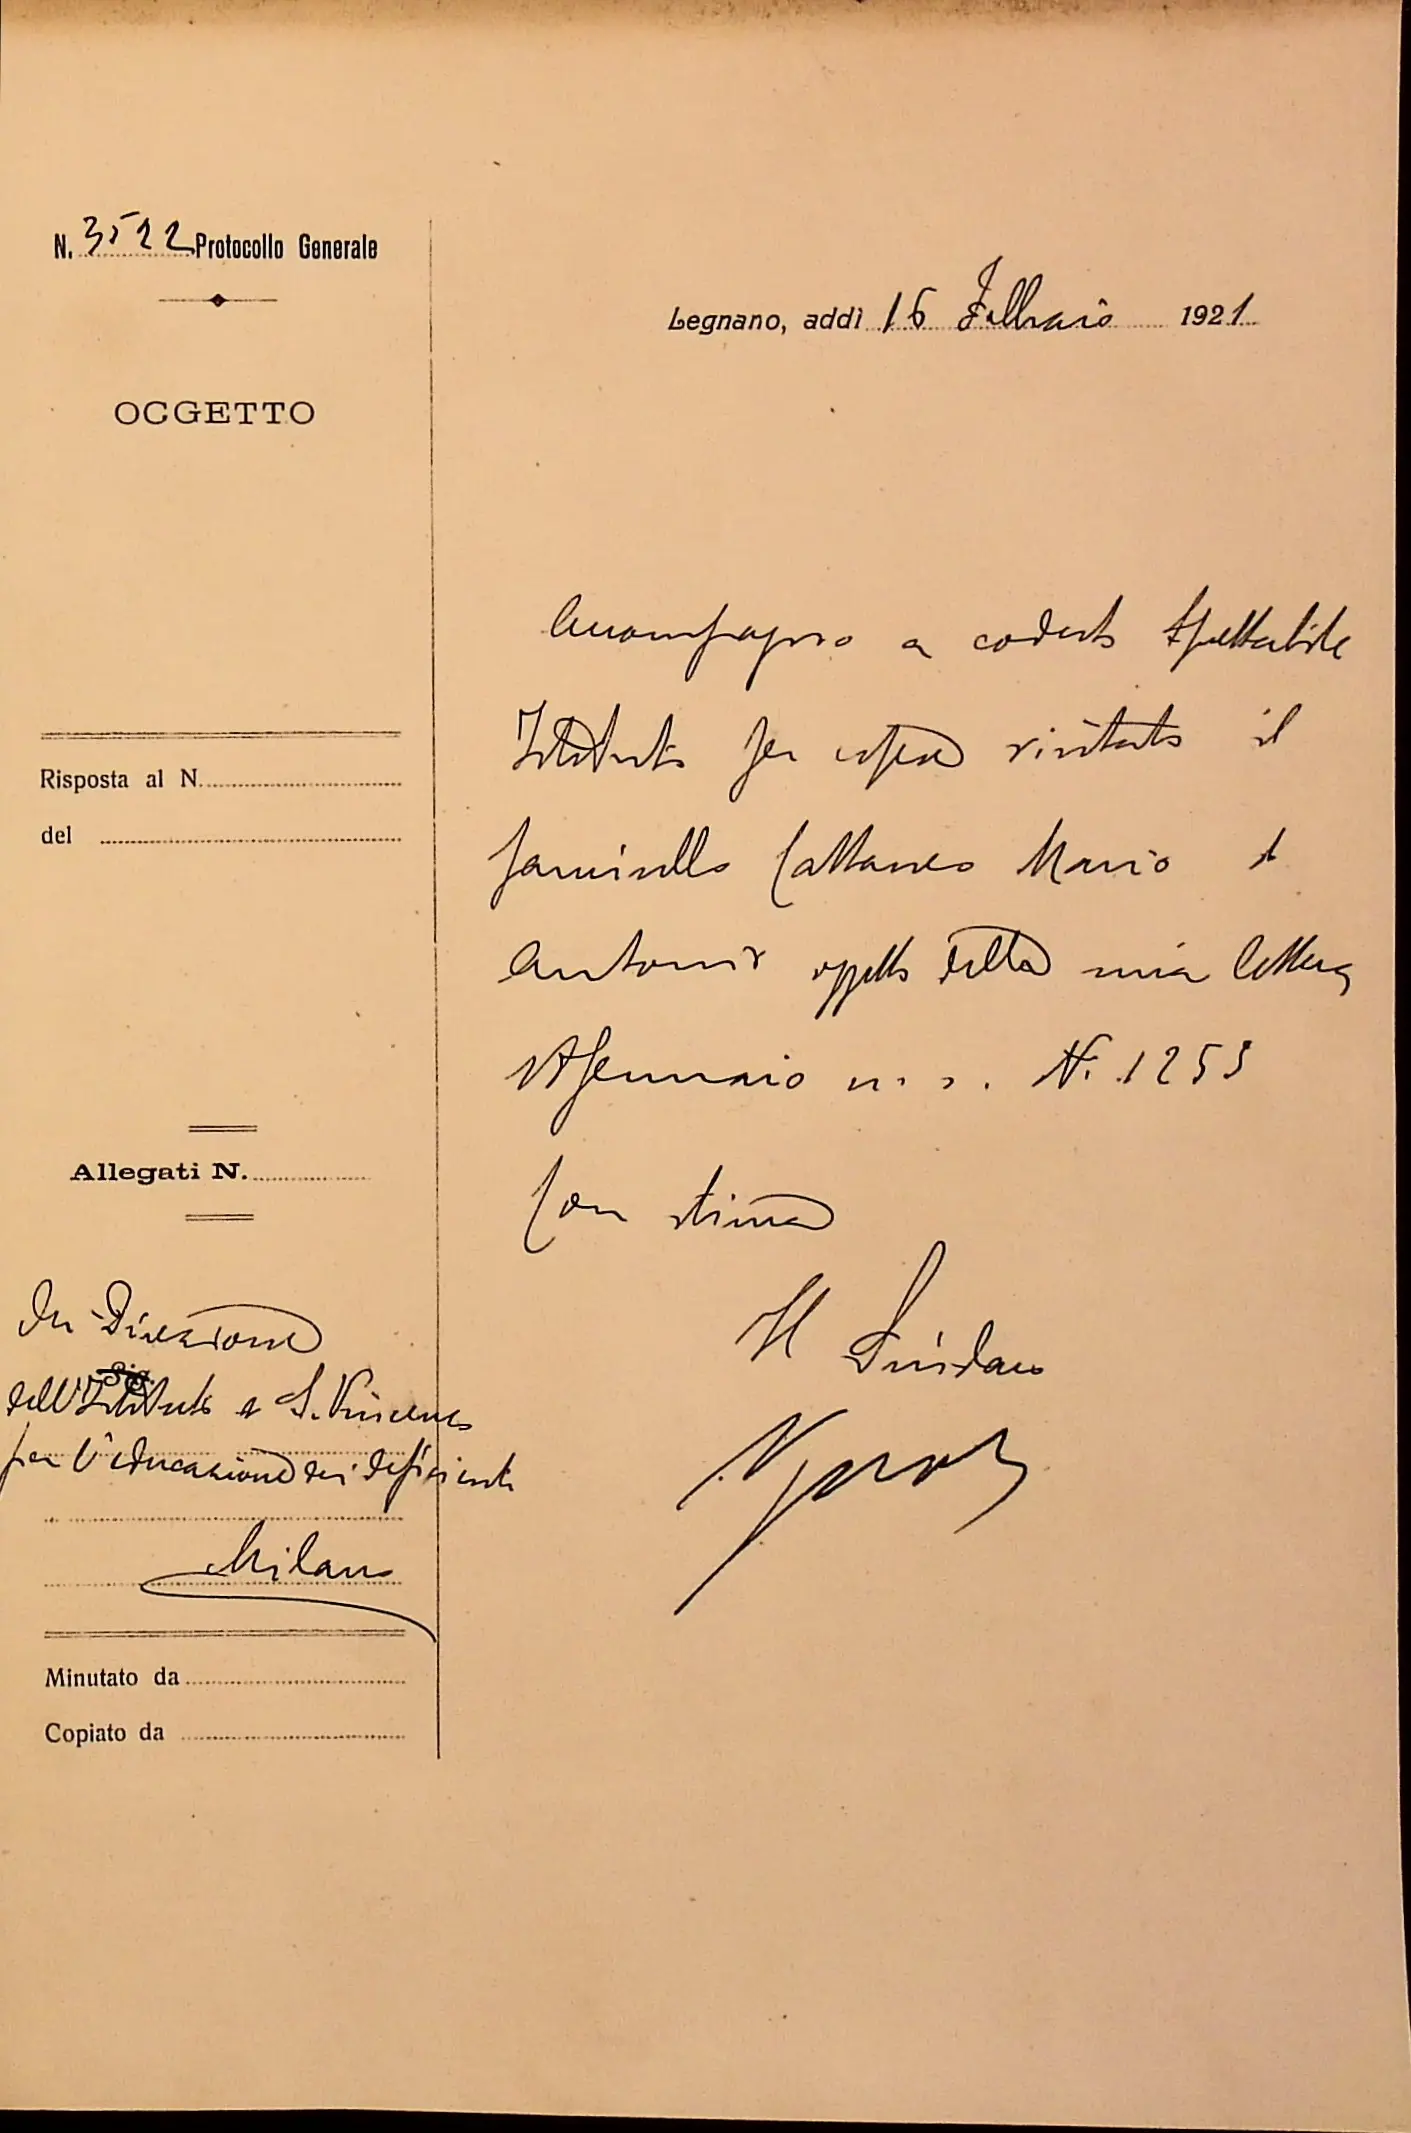 N. 3522 Protocollo Generale
Legnano, addì 16 Febbraio 1921
OGGETTO
Accompagno a codesto Spettabile
Istituto per essere visitato il
fanciullo Cattaneo Mario di
Antonio oggetto della mia lettera
Gennaio u. s. N. 1253
Con stima
Il Sindaco
Risposta al N.
del
Allegati N.
On Direzione
Sig.
dell'Istituto di S. Vincenzo
per l'educazione dei deficienti
Milano
Minutato da
Copiato da